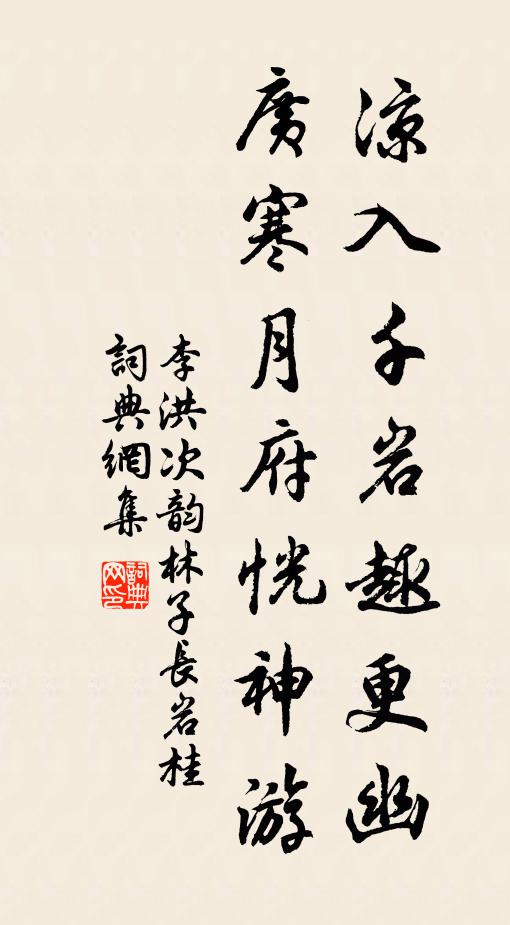 凉入千岩趣更幽
廣寒月府恍神游
李洪次韵林子長岩桂
詞典網集
詞典网印